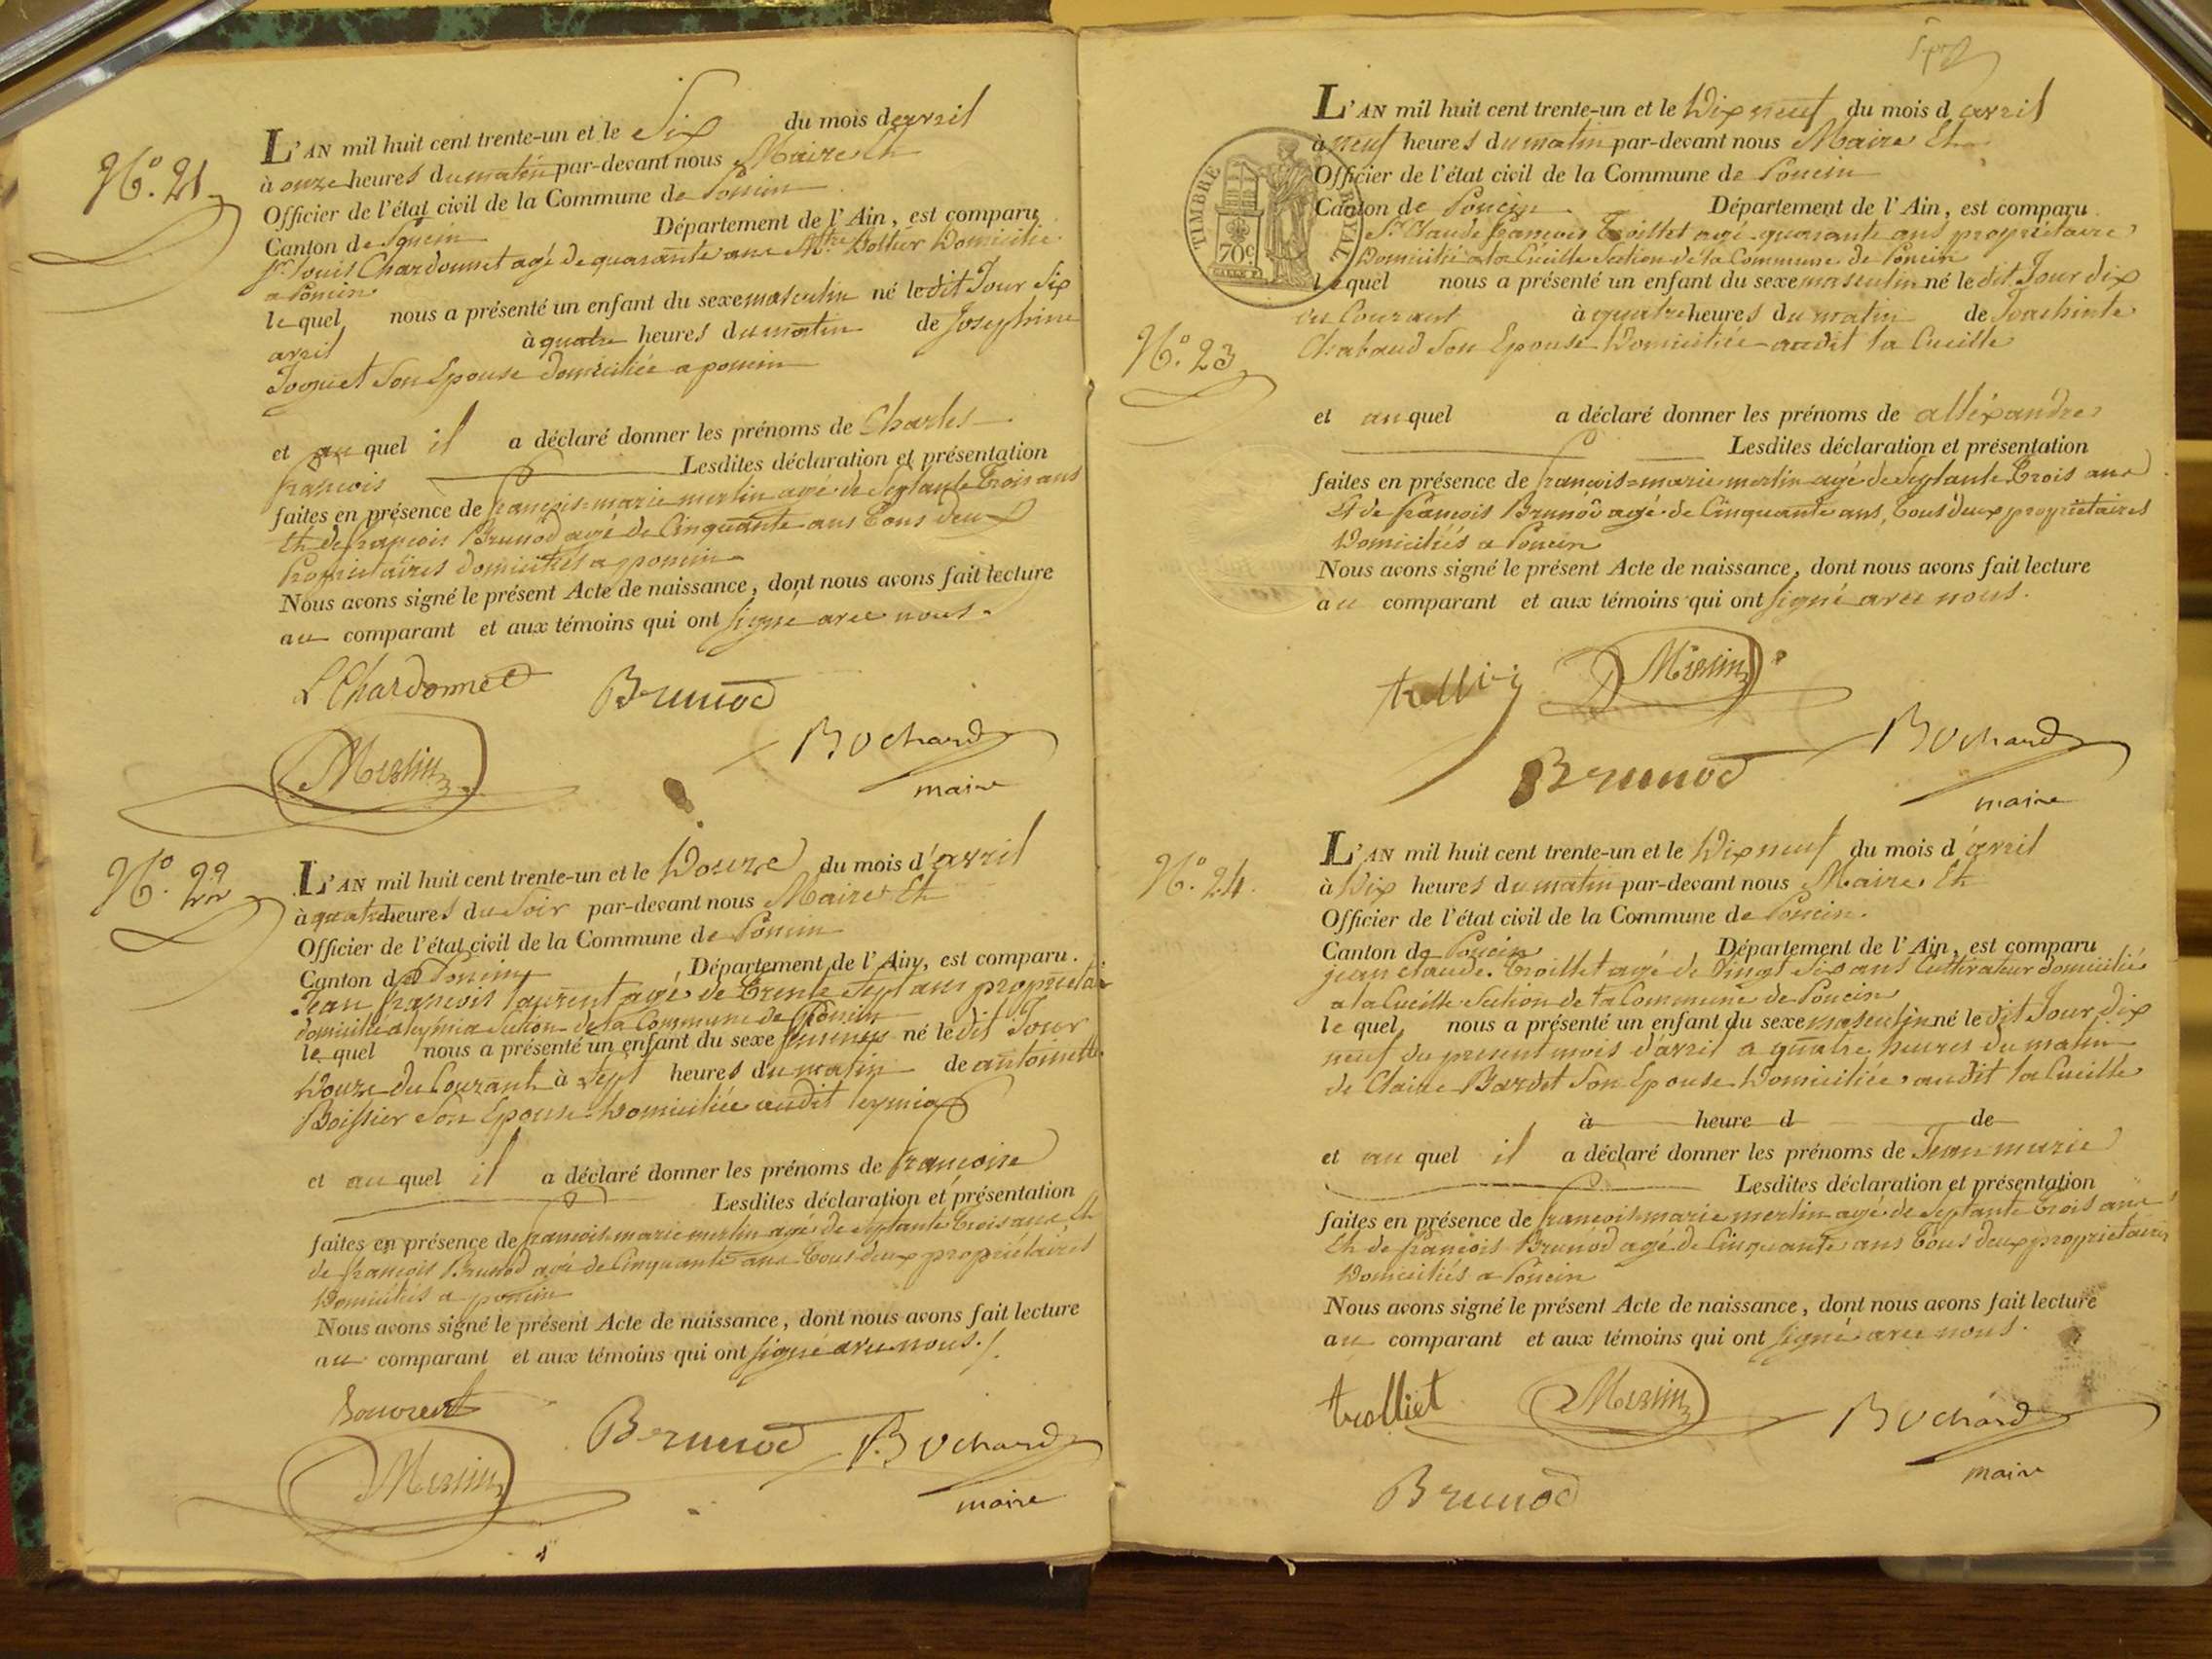 N.º 21
L'AN mil huit cent trente-un et le Six du mois d'avril
à onze heures du matin par-devant nous Maire Et
Officier de l'état civil de la Commune de Poncin
Canton de Poncin Département de l'Ain, est comparu
Sr. Louis Chardonnet agé de quarante ans Domicilié
a Poncin
le quel nous a présenté un enfant du sexe masculin né le dit Jour Six
avril à quatre heures du matin de Josephine
Son Epouse domiciliée a poncin
et au quel il a déclaré donner les prénoms de Charles
francois Lesdites déclaration et présentation
faites en présence de francois-marie merlin agé de Septante Trois ans
Et de francois Brunod agé de Cinquante ans Tous deux
Propriétaires domiciliés a poncin
Nous avons signé le présent Acte de naissance, dont nous avons fait lecture
au comparant et aux témoins qui ont signé avec nous.
L Chardonnet Brunod
Merlin Bochard
maire
N.º 22
L'AN mil huit cent trente-un et le Douze du mois d'avril
à quatre heures du Soir par-devant nous Maire Et
Officier de l'état civil de la Commune de Poncin
Canton de Poncin Département de l'Ain, est comparu
Jean francois Laurent agé de Trente Sept ans propriétaire
domicilié a leymia Section de la Commune de Poncin
le quel nous a présenté un enfant du sexe né le dit Jour
Douze du Courant à Sept heures du matin de antoinette
Boissier Son Epouse Domiciliée audit leymia
et au quel il a déclaré donner les prénoms de francoise
Lesdites déclaration et présentation
faites en présence de francois-marie merlin agé de Septante Trois ans, Et
de francois Brunod agé de Cinquante ans Tous deux propriétaires
Domiciliés a poncin
Nous avons signé le présent Acte de naissance, dont nous avons fait lecture
au comparant et aux témoins qui ont signé avec nous./.
Brunod Bochard
Merlin
maire
L'AN mil huit cent trente-un et le Dix neuf du mois d avril
à neuf heures du matin par-devant nous Maire Et
Officier de l'état civil de la Commune de Poncin
Canton de Poncin Département de l'Ain, est comparu
TIMBRE ROYAL
70c
Sr. Claude francois Trolliet agé quarante ans propriétaire
Domicilié a la Cueille Section de la Commune de Poncin
le quel nous a présenté un enfant du sexe masculin né le dit Jour dix
du Courant à quatre heures du matin de
N.º 23
Chabaud Son Epouse Domiciliée audit la Cueille
et au quel a déclaré donner les prénoms de alléxandre
Lesdites déclaration et présentation
faites en présence de francois-marie merlin agé de Septante Trois ans
Et de francois Brunod agé de Cinquante ans, Tous deux propriétaires
Domiciliés a Poncin
Nous avons signé le présent Acte de naissance, dont nous avons fait lecture
au comparant et aux témoins qui ont signé avec nous.
Merlin
Bochard
Brunod
maire
N.º 24.
L'AN mil huit cent trente-un et le Dix neuf du mois d avril
à Dix heures du matin par-devant nous Maire Et
Officier de l'état civil de la Commune de Poncin.
Canton de Poncin Département de l'Ain, est comparu
jean claude Trolliet agé de Vingt Six ans Cultivateur domicilié
a la Cueille Section de la Commune de Poncin
le quel nous a présenté un enfant du sexe masculin né le dit Jour dix
neuf du present mois d'avril a quatre heures du matin
de Claire Bardet Son Epouse Domiciliée audit la Cueille
à heure d de
et au quel il a déclaré donner les prénoms de Jean marie
Lesdites déclaration et présentation
faites en présence de francois-marie merlin agé de Septante Trois ans
Et de francois Brunod agé de Cinquante ans Tous deux propriétaires
Domiciliés a Poncin
Nous avons signé le présent Acte de naissance, dont nous avons fait lecture
au comparant et aux témoins qui ont signé avec nous.
trolliet Merlin Bochard
maire
Brunod